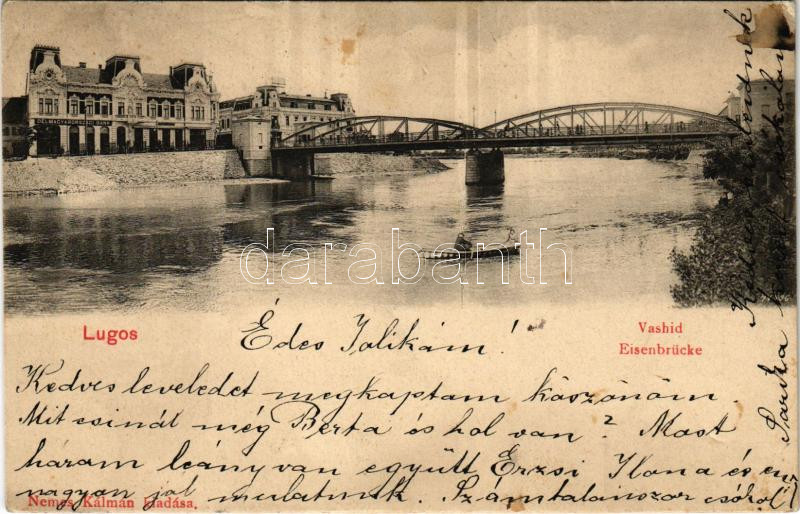 DÉLMAGYARORSZÁGI BANK
darabanth
Lugos
Vashid
Eisenbrücke
Édes Jolikám!
Kedves leveledet megkaptam köszönöm.
Mit csinál még Berta és hol van? Most
három leány van együtt Erzsi Ilona és én
nagyon jol mulatunk. Számtalanszor csókol
Nemes Kálmán kiadása.
Sarika